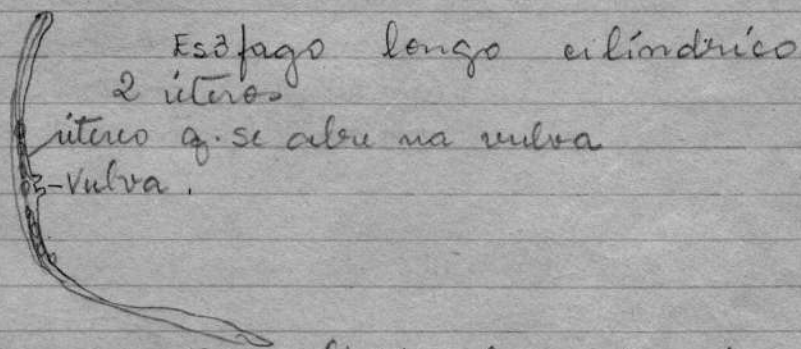 Esófago longo cilíndrico
2 úteros
útero q. se abre na vulva
-Vulva.